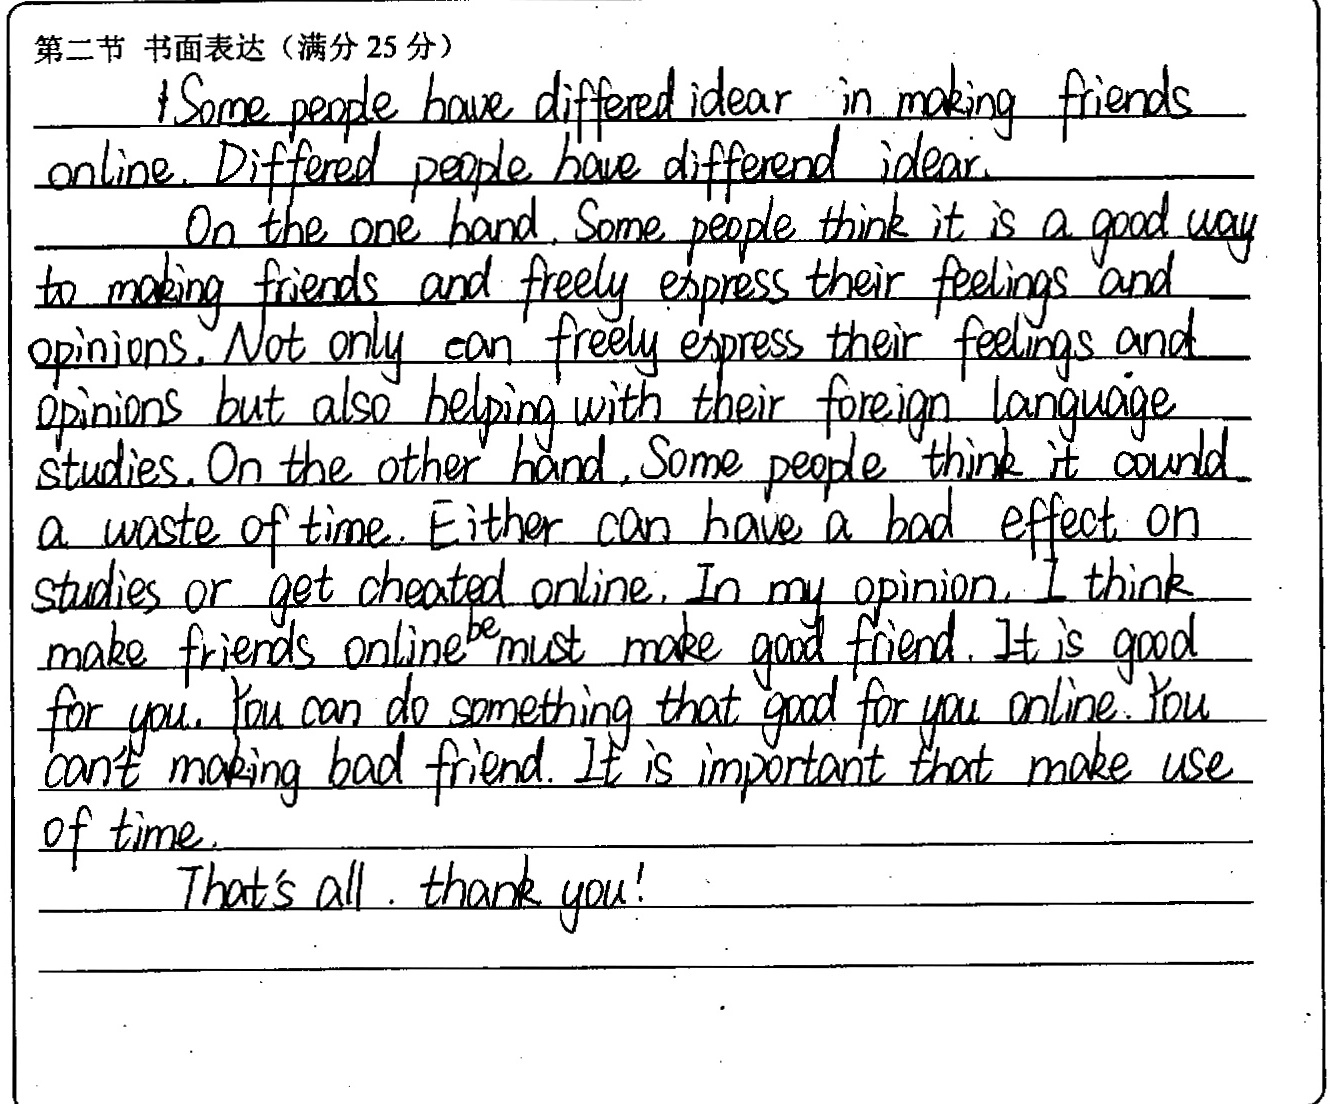 第二节 书面表达（满分 25 分）
Some people have differed idear in making friends
online. Differed people have differend idear.
On the one hand. Some people think it is a good way
to making friends and freely express their feelings and
opinions. Not only can freely express their feelings and
opinions but also helping with their foreign language
studies. On the other hand, Some people think it counld
a waste of time. Either can have a bad effect on
studies or get cheated online. In my opinion, I think
make friends online be must make good friend. It is good
for you. You can do something that good for you online. You
can't making bad friend. It is important that make use
of time.
That's all. thank you!